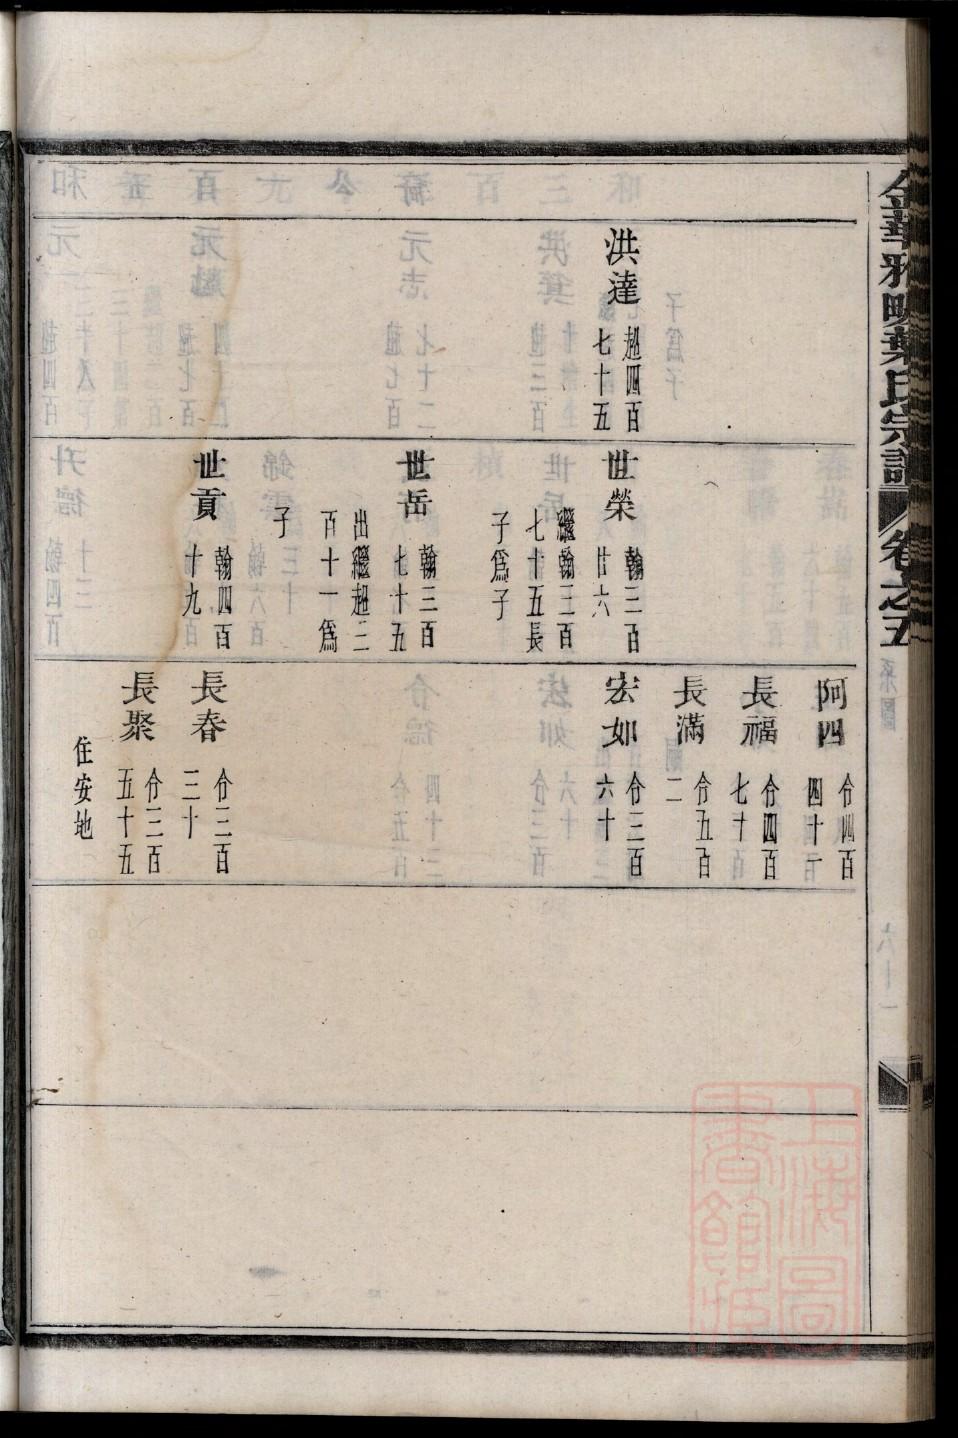 金華雅畈葉氏宗譜
卷之五
系圖
六十一
洪達
趙四百
七十五
世榮
翰三百
廿六
繼翰三百
七十五長
子爲子
世岳
翰三百
七十五
出繼趙三
百十一爲
子
世貢
翰四百
十九
阿四
份四百
四十一
長福
份四百
七十
長滿
份五百
二
宏如
份三百
六十
長春
份三百
三十
長聚
份三百
五十五
住安地
上海圖
書館藏